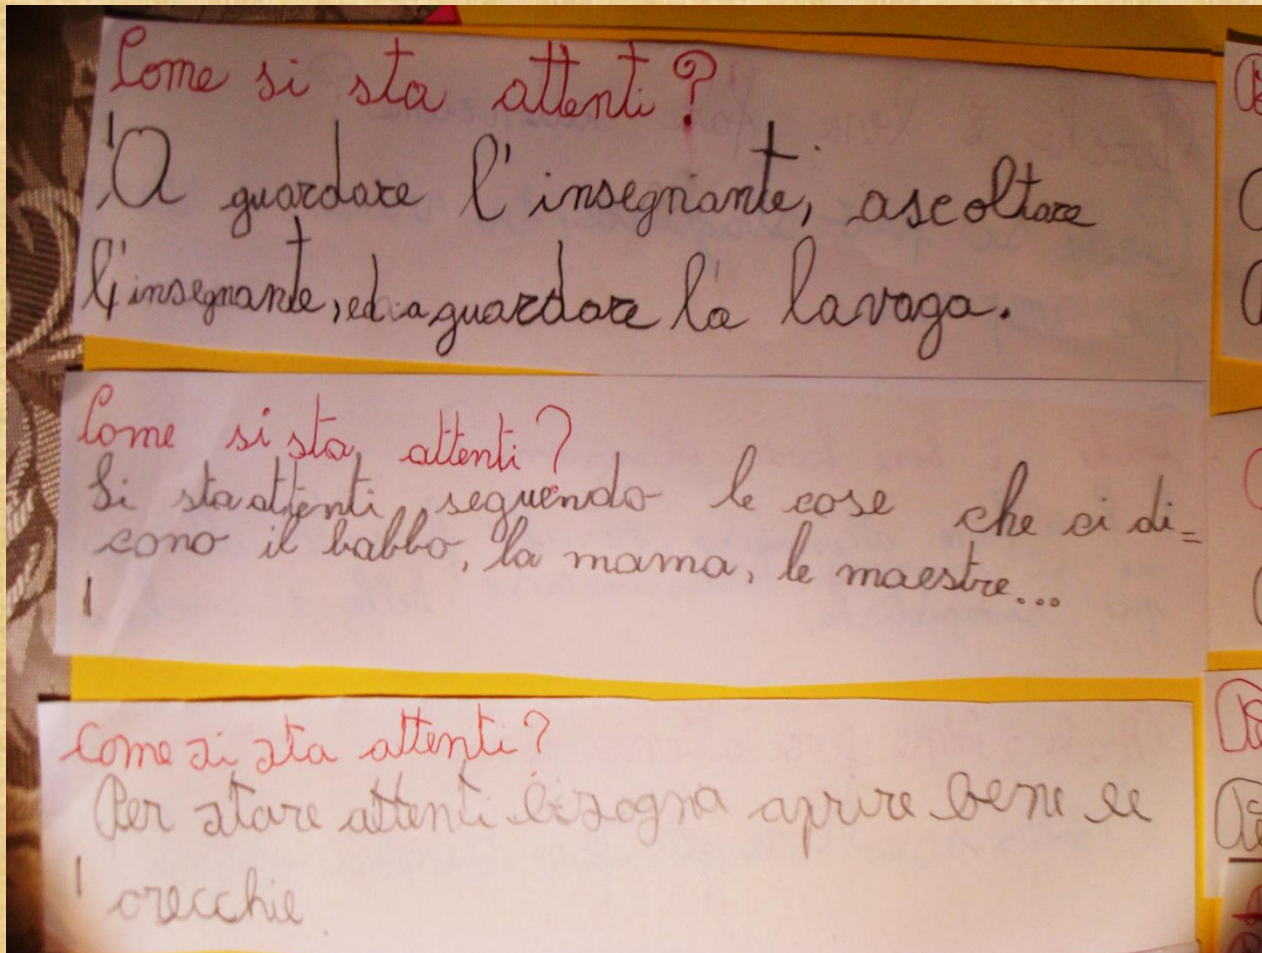 Come si sta attenti?
A guardare l'insegnante, ascoltare
l'insegnante, ed a guardare la lavaga.
Come si sta attenti?
Si sta attenti seguendo le cose che ci di=
cono il babbo, la mama, le maestre...
Come si sta attenti?
Per stare attenti bisogna aprire bene le
orecchie